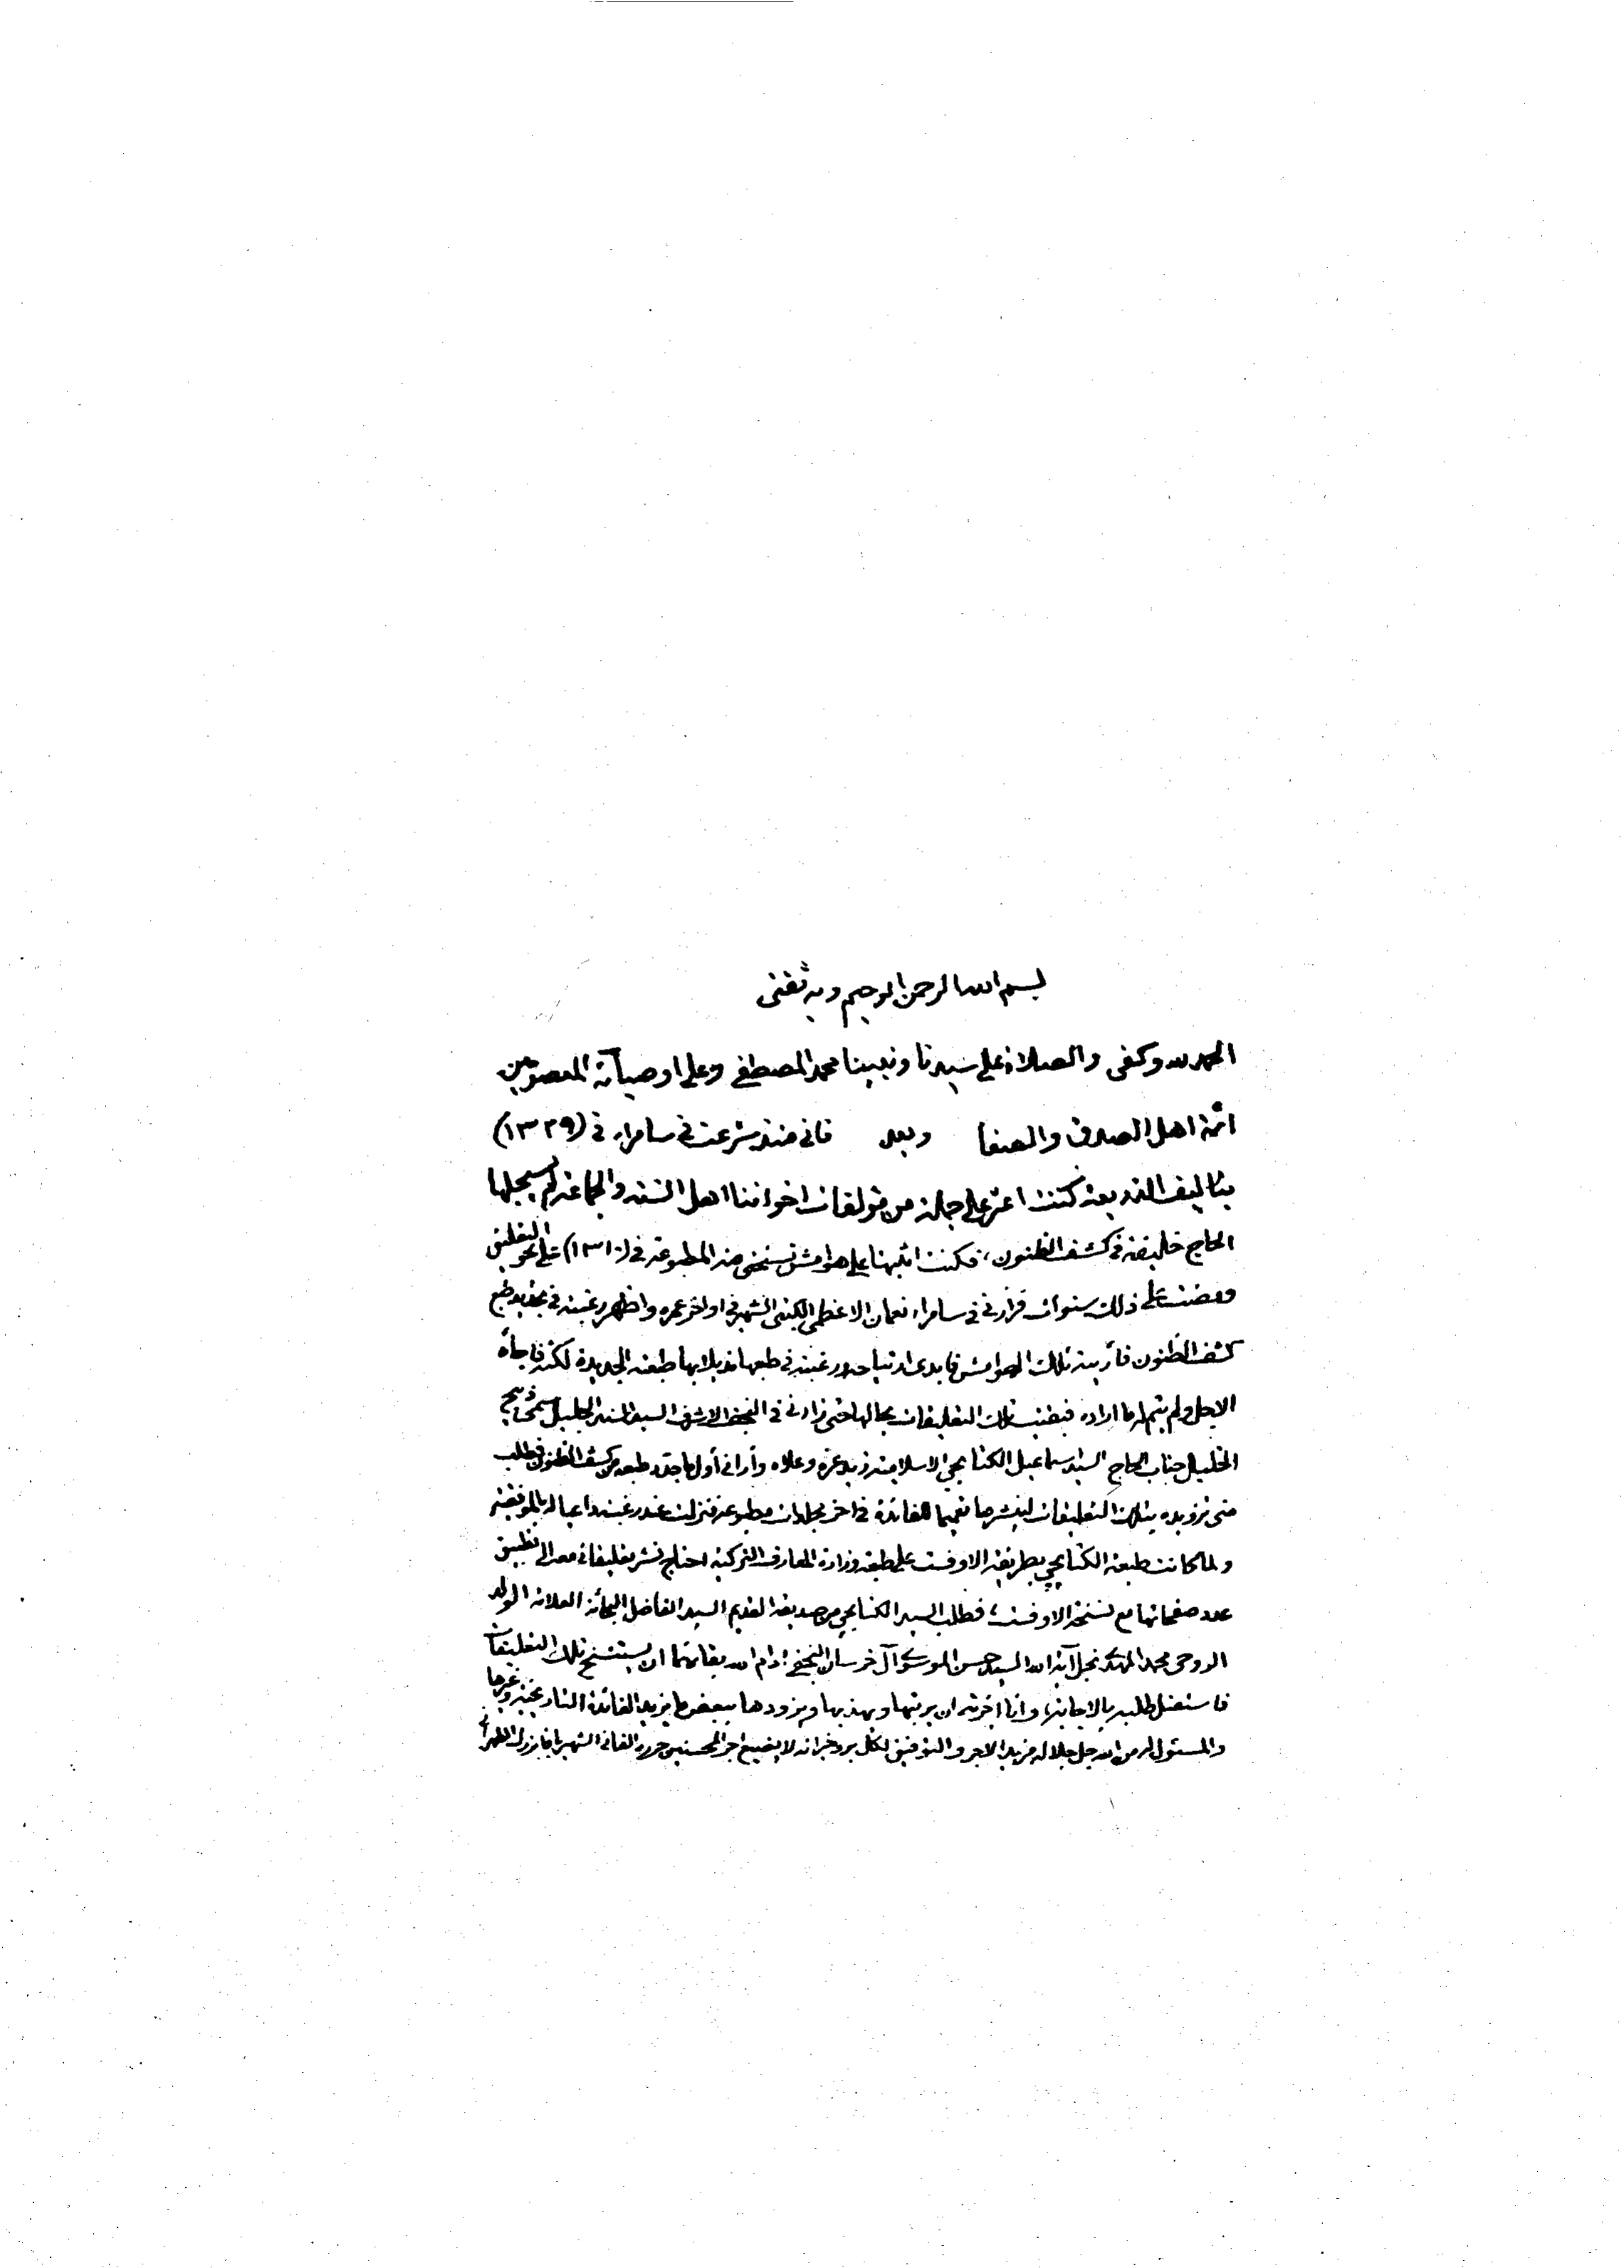 بسم الله الرحمن الرحيم وبه ثقتي
الحمد لله وكفى والصلاة على سيدنا ونبينا محمد المصطفى وعلى اوصيائه المعصومين
ائمة اهل الصدق والصفا وبعد فاني منذ شرعت في سامراء في (١٣٢٩)
بتاليف الذريعة كنت اعثر على جملة من مؤلفات اخواننا اهل السنة والجماعة لم يسجلها
الحاج خليفة في كشف الظنون، فكنت اثبتها على هوامش نسختي منه المطبوعة في (١٣١٠) على نحو التعليق
ومضت على ذلك سنوات فزارني في سامراء نعمان الاعظمي الكتبي الشهير في اواخر عمره واظهر رغبته في تجديد طبع
كشف الظنون فأريته تلك الهوامش فابدى ارتياحه ورغبته في طبعها مذيلا بها طبعته الجديدة لكنه فاجأه
الاجل ولم يتم له ما اراده فبقيت تلك التعليقات بحالها حتى زارني في النجف الاشرف السيد السند الجليل سمي ذبيح
الخليل جناب الحاج السيد اسماعيل الكتابچي الاسلامية زيد عزه وعلاه وأراني أول ما جدد طبعه من كشف الظنون فطلب
مني تزويده بتلك التعليقات لينشرها تعميما للفائدة في اخر مجلدات مطبوعه فنزلت عند رغبته داعيا له بالموفقية
ولما كانت طبعة الكتابچي بطريقة الاوفست على طبعة وزارة المعارف التركية احتاج نشر تعليقاتي معه الى تطبيق
عدد صفحاتها مع نسخة الاوفست، فطلب السيد الكتابچي من صديقه القديم السيد الفاضل البحاثة العلامة الولد
الروحي محمد المهدي نجل آية الله السيد حسن الموسوي آل خرسان النجفي ادام الله بقائهما ان يستنسخ تلك التعليقات
فاستقبل طلبه بالاجابة، وانا اجزته ان يرتبها ويهذبها ويزودها ببعض ما يزيد الفائدة التاريخية وغيرها
والمسئول له من الله جل جلاله مزيد الاجر والتوفيق لكل بر وخير انه لا يضيع اجر المحسنين حرره الفاني الشهير بآقا بزرك الطهراني